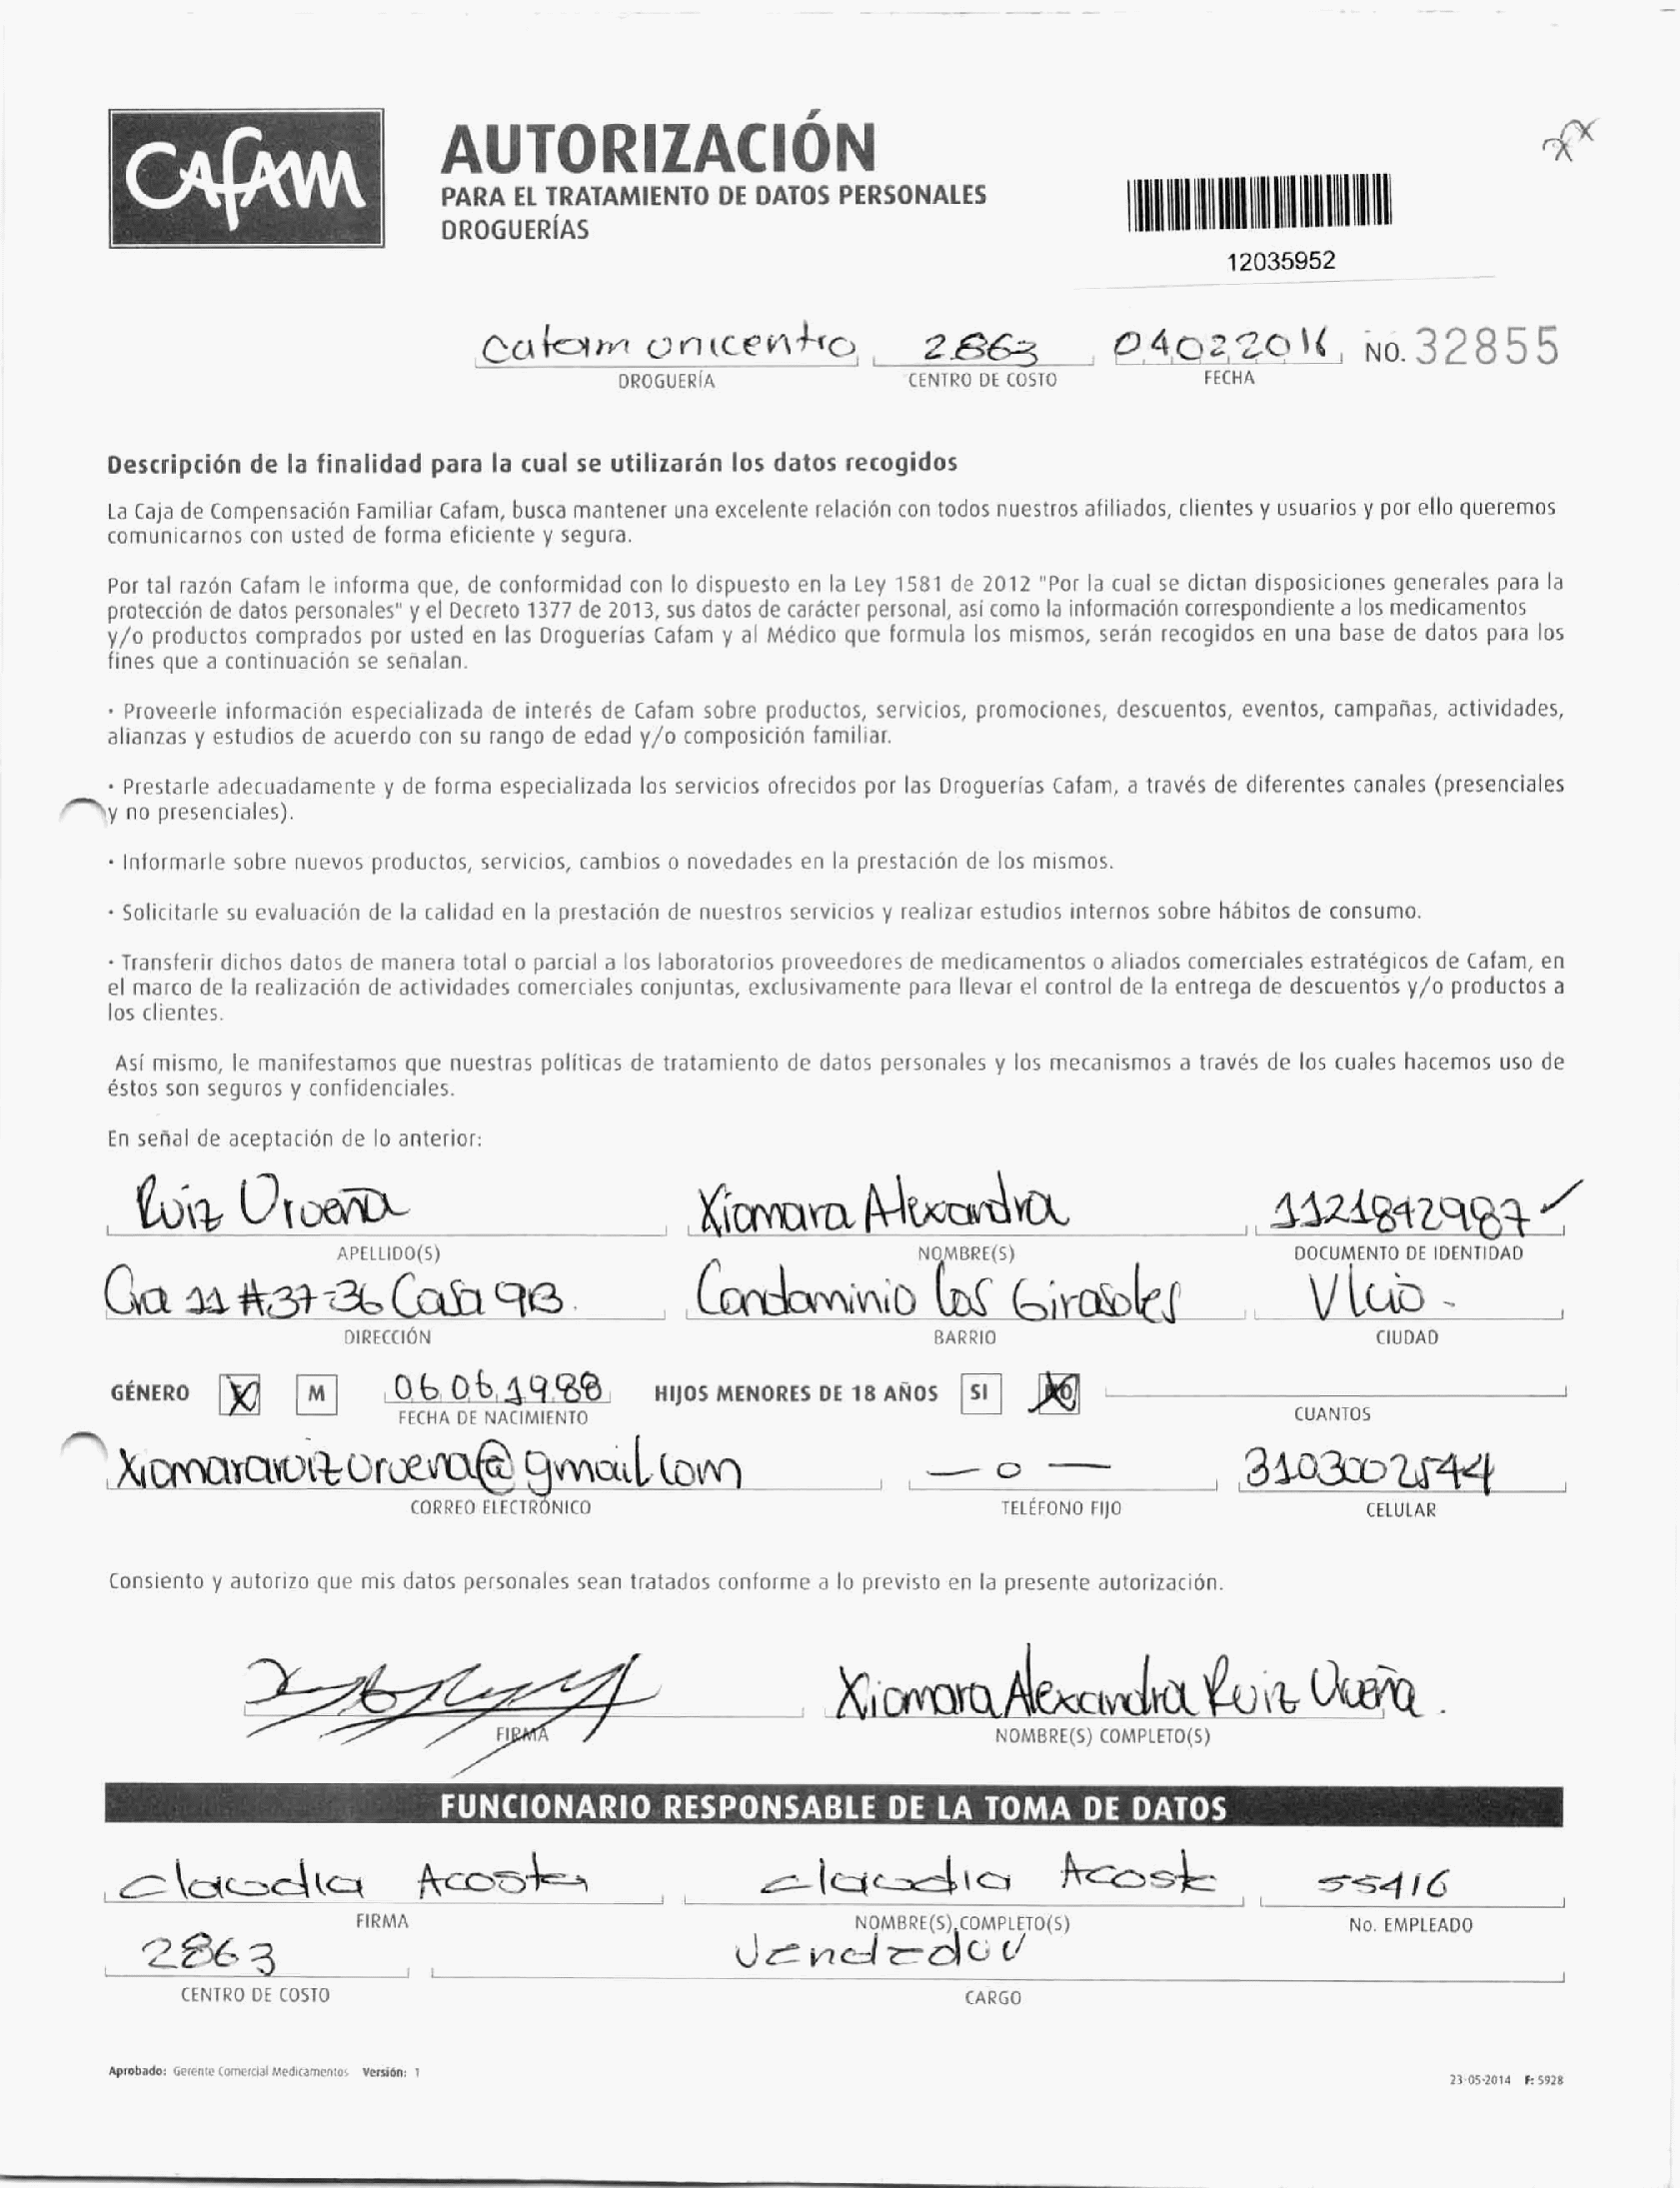 CAFAM
AUTORIZACIÓN
PARA EL TRATAMIENTO DE DATOS PERSONALES
DROGUERÍAS
12035952
Cafam unicentro 2863 04022016 NO. 32855
DROGUERÍA CENTRO DE COSTO FECHA
Descripción de la finalidad para la cual se utilizarán los datos recogidos
La Caja de Compensación Familiar Cafam, busca mantener una excelente relación con todos nuestros afiliados, clientes y usuarios y por ello queremos
comunicarnos con usted de forma eficiente y segura.
Por tal razón Cafam le informa que, de conformidad con lo dispuesto en la Ley 1581 de 2012 "Por la cual se dictan disposiciones generales para la
protección de datos personales" y el Decreto 1377 de 2013, sus datos de carácter personal, así como la información correspondiente a los medicamentos
y/o productos comprados por usted en las Droguerías Cafam y al Médico que formula los mismos, serán recogidos en una base de datos para los
fines que a continuación se señalan.
· Proveerle información especializada de interés de Cafam sobre productos, servicios, promociones, descuentos, eventos, campañas, actividades,
alianzas y estudios de acuerdo con su rango de edad y/o composición familiar.
· Prestarle adecuadamente y de forma especializada los servicios ofrecidos por las Droguerías Cafam, a través de diferentes canales (presenciales
y no presenciales).
· Informarle sobre nuevos productos, servicios, cambios o novedades en la prestación de los mismos.
· Solicitarle su evaluación de la calidad en la prestación de nuestros servicios y realizar estudios internos sobre hábitos de consumo.
· Transferir dichos datos de manera total o parcial a los laboratorios proveedores de medicamentos o aliados comerciales estratégicos de Cafam, en
el marco de la realización de actividades comerciales conjuntas, exclusivamente para llevar el control de la entrega de descuentos y/o productos a
los clientes.
Así mismo, le manifestamos que nuestras políticas de tratamiento de datos personales y los mecanismos a través de los cuales hacemos uso de
éstos son seguros y confidenciales.
En señal de aceptación de lo anterior:
Ruiz Urueña Xiomara Alexandra 1121842987
APELLIDO(S) NOMBRE(S) DOCUMENTO DE IDENTIDAD
Cra 11 #37-36 Casa 9B. Condominio Los Girasoles V/cio.
DIRECCIÓN BARRIO CIUDAD
GÉNERO X M 06.06.1988 HIJOS MENORES DE 18 AÑOS SI NO
FECHA DE NACIMIENTO CUANTOS
xiomararuizuruena@gmail.com — 0 — 3103002544
CORREO ELECTRÓNICO TELÉFONO FIJO CELULAR
Consiento y autorizo que mis datos personales sean tratados conforme a lo previsto en la presente autorización.
Xiomara Alexandra Ruiz Urueña.
FIRMA NOMBRE(S) COMPLETO(S)
FUNCIONARIO RESPONSABLE DE LA TOMA DE DATOS
Claudia Acosta Claudia Acosta 55416
FIRMA NOMBRE(S) COMPLETO(S) No. EMPLEADO
2863 Vendedor
CENTRO DE COSTO CARGO
Aprobado: Gerente Comercial Medicamentos Versión: 1
23-05-2014 F: 5928